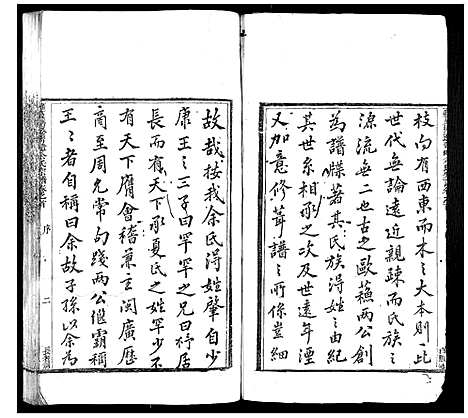 枝向有西東而木之大本則一此
世代無論遠近親疎而氏族之
源流無二也古之歐蘇兩公創
為譜牒著其氏族得姓之由紀
其世系相承之次及世遠年湮
又加意修葺譜之所係豈細
故哉按我余氏得姓肇自少
康王之三子曰罕罕之兄曰杼居
長而有天下承夏氏之姓罕少不
有天下膺會稽兼王閩廣歷
商至周允常句踐兩公偃霸稱
王王者自稱曰余故子孫以余為
序
二